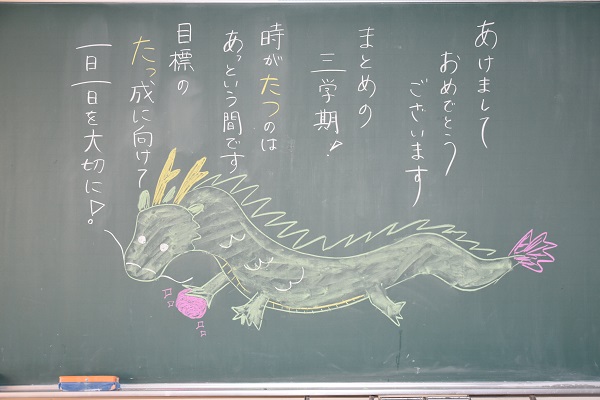 あけまして
おめでとう
ございます
まとめの
三学期!
時がたつのは
あっという間です
目標の
たっ成に向けて
一日一日を大切に!